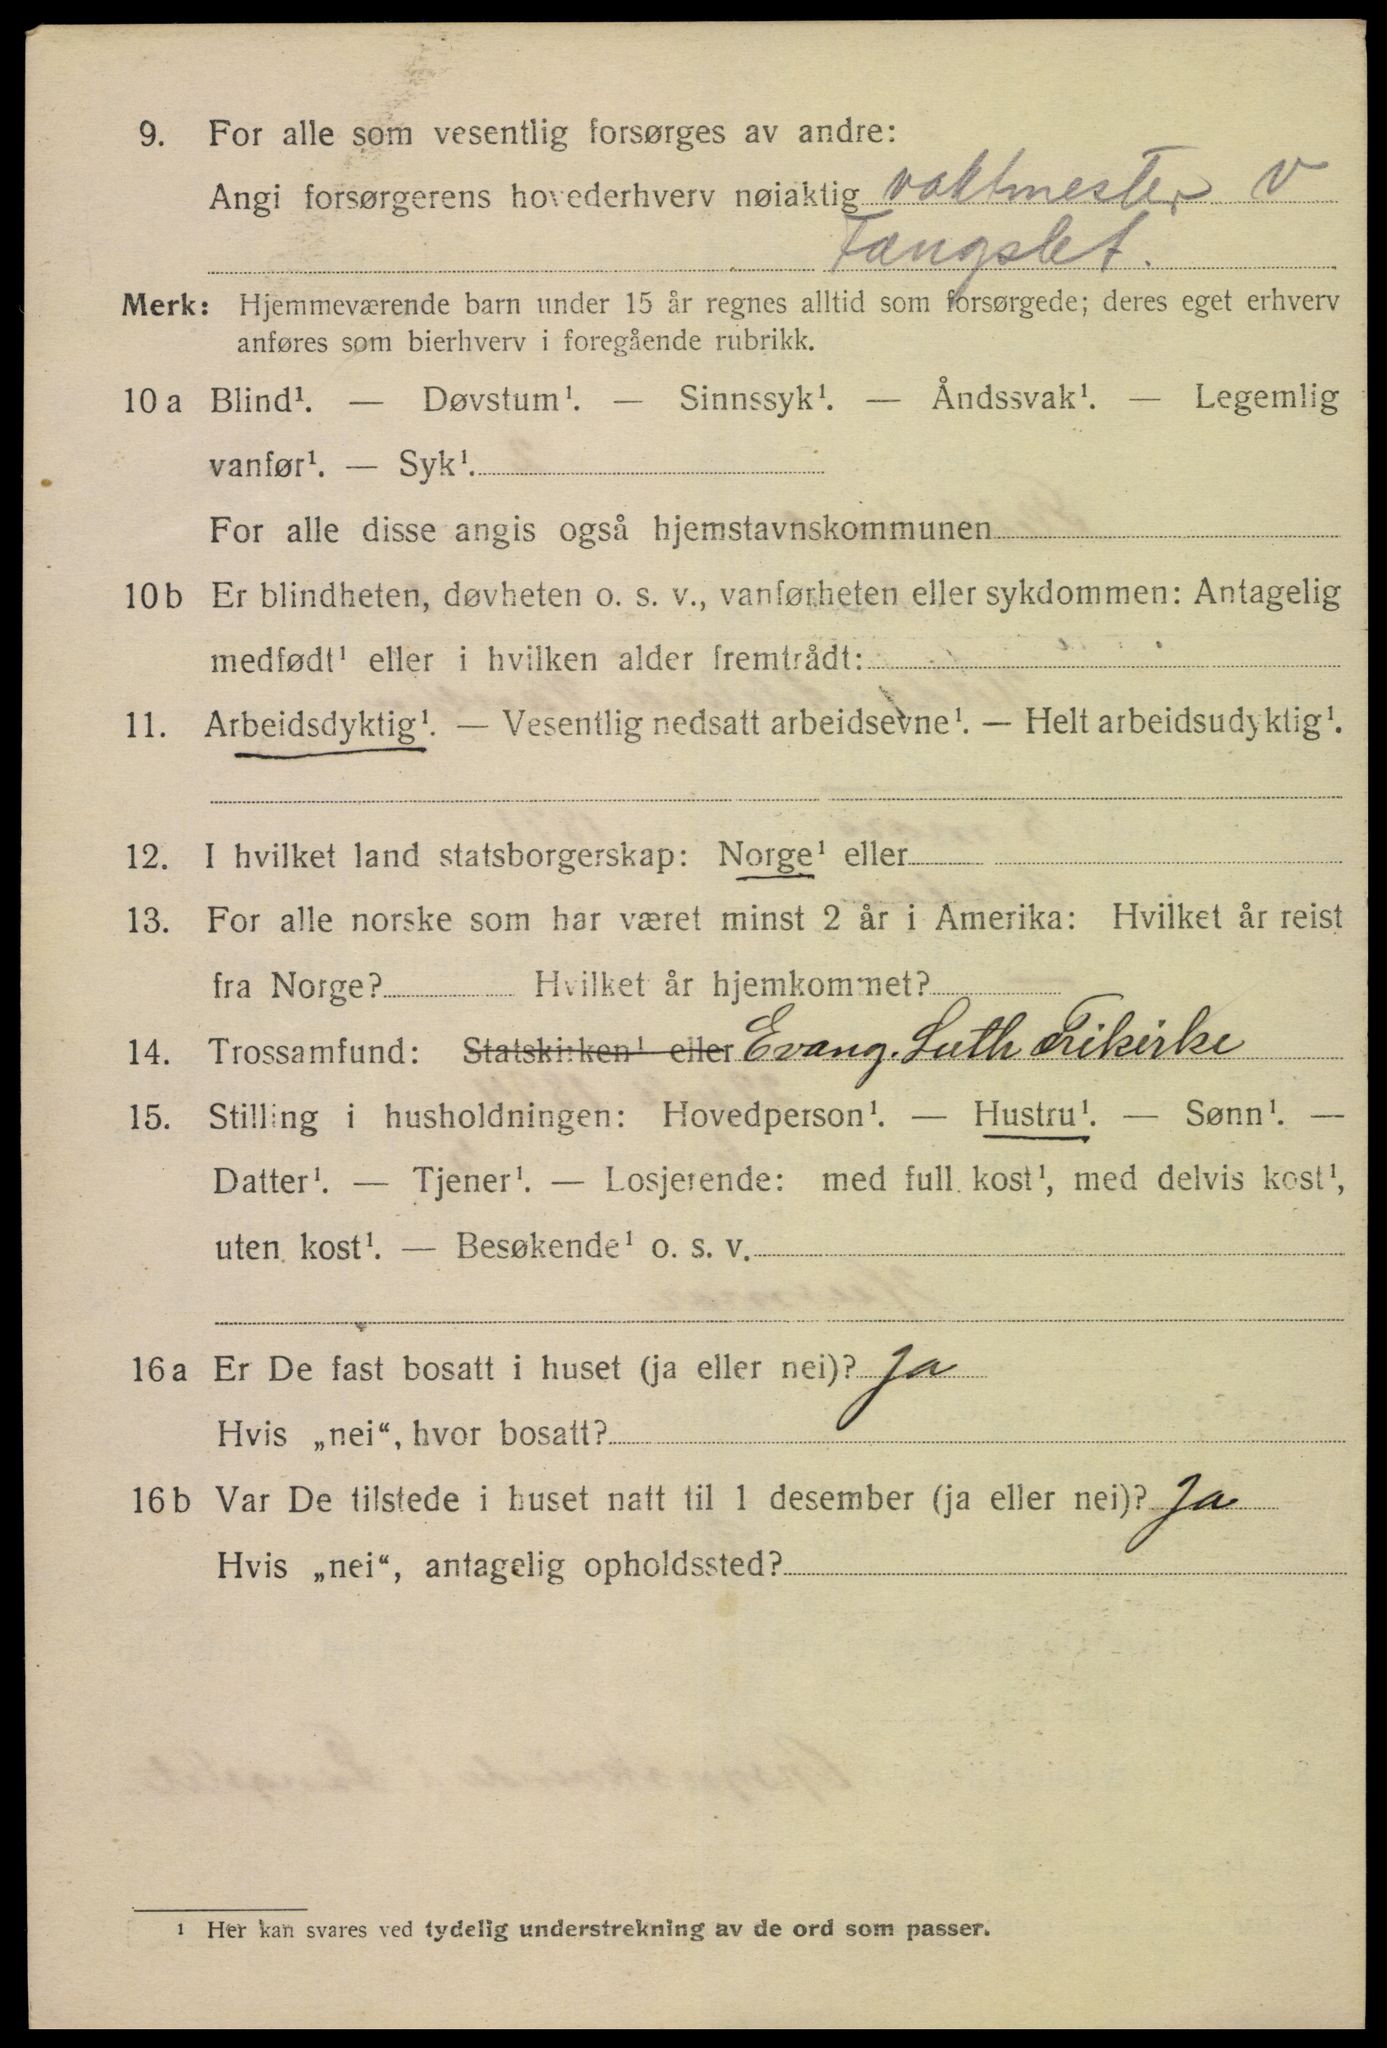 9. For alle som vesentlig forsørges av andre:
Angi forsørgerens hovederhverv nøiaktig vaktmester v
Fængslet.
Merk: Hjemmeværende barn under 15 år regnes alltid som forsørgede; deres eget erhverv
anføres som bierhverv i foregående rubrikk.
10 a Blind¹. — Døvstum¹. — Sinnssyk¹. — Åndssvak¹. — Legemlig
vanfør¹. — Syk¹.
For alle disse angis også hjemstavnskommunen
10 b Er blindheten, døvheten o. s. v., vanførheten eller sykdommen: Antagelig
medfødt¹ eller i hvilken alder fremtrådt:
11. Arbeidsdyktig¹. — Vesentlig nedsatt arbeidsevne¹. — Helt arbeidsudyktig¹.
12. I hvilket land statsborgerskap: Norge¹ eller
13. For alle norske som har været minst 2 år i Amerika: Hvilket år reist
fra Norge? Hvilket år hjemkommet?
14. Trossamfund: Statskirken¹ eller Evang. Luth Frikirke
15. Stilling i husholdningen: Hovedperson¹. — Hustru¹. — Sønn¹. —
Datter¹. — Tjener¹. — Losjerende: med full kost¹, med delvis kost¹,
uten kost¹. — Besøkende¹ o. s. v.
16 a Er De fast bosatt i huset (ja eller nei)? Ja
Hvis „nei“, hvor bosatt?
16 b Var De tilstede i huset natt til 1 desember (ja eller nei)? Ja
Hvis „nei“, antagelig opholdssted?
¹ Her kan svares ved tydelig understrekning av de ord som passer.